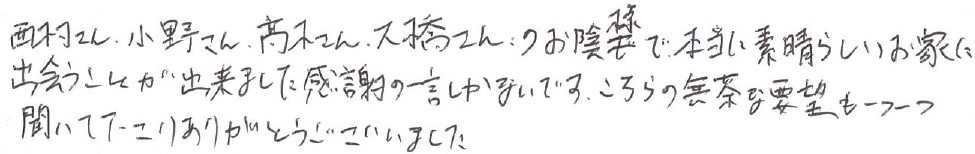 西村さん、小野さん、高木さん、大橋さん、のお陰様で本当に素晴らしいお家に
出会うことが出来ました感謝の一言しかないです。こちらの無茶な要望も一つ一つ
聞いて下さりありがとうございました